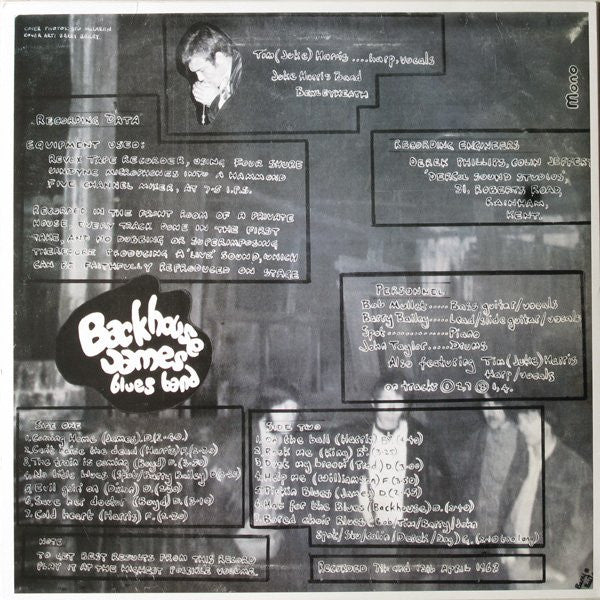 COVER PHOTOS,
COVER ART: BARRY BAILEY.
Tim (Juke) Harris .... harp, vocals
Juke Harris Band
Bexleyheath
Mono
RECORDING DATA
EQUIPMENT USED:
REVOX TAPE RECORDER, USING FOUR SHURE
UNIDYNE MICROPHONES INTO A HAMMOND
FIVE CHANNEL MIXER, AT 7.5 I.P.S.
RECORDED IN THE FRONT ROOM OF A PRIVATE
HOUSE. EVERY TRACK DONE IN THE FIRST
TAKE, AND NO DUBBING OR SUPERIMPOSING
THEREFORE PRODUCING A 'LIVE' SOUND, WHICH
CAN BE FAITHFULLY REPRODUCED ON STAGE
RECORDING ENGINEERS
DEREK PHILLIPS, COLIN JEFFERY
'DERCOL SOUND STUDIOS',
31, ROBERTS ROAD,
RAINHAM,
KENT.
PERSONNEL
Bob Mullet..... Bass guitar/vocals
Barry Bailey.....Lead/slide guitar/vocals
Spot............... Piano
John Taylor..... Drums
Also featuring Tim (Juke) Harris
Harp/vocals
on tracks
Backhouse
James
blues band
SIDE ONE
1. Coming Home (James). D. (2-40)
2. Can't take the dead (Harris)
3. The train is coming (Boyd)
4. No title blues (Spot/Barry Bailey)
5. Evil girl on (Dixon) D.
6. Save her doctor (Boyd) D.
7. Cold heart (Harris) F.
SIDE TWO
1. On the ball (Harris)
2. Rock me (King)
3. Dust my broom (Trad) D
4. Help me (Williamson) F
5. Dickin Blues (James) D
6. Hut for the Blues (Backhouse) D.
7. Bored choir Blues Bob/Tim/Barry/John
Spot/Stu/Colin/Derek/Dog) G.
NOTE
TO GET BEST RESULTS FROM THIS RECORD
PLAY IT AT THE HIGHEST POSSIBLE VOLUME.
RECORDED 7th AND 12th APRIL 1968